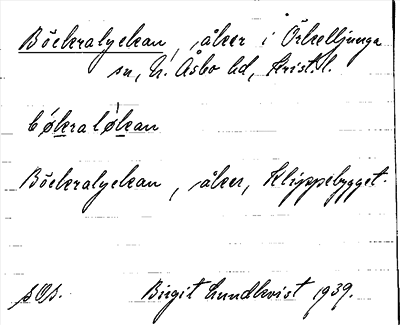 Böckralyckan, åker i Örkelljunga
sn, N. Åsbo hd, Krist. l.
bo̍kralo̍kan
Böckralyckan, åker, Klippebygget.
s Os.    Birgit Lundkvist 1939.